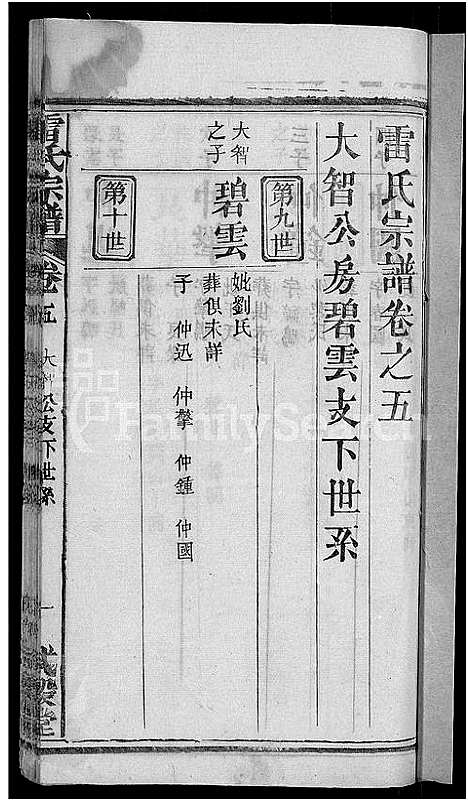 雷氏宗譜卷之五
大智公房碧雲支下世系
第九世
大智之子
碧雲
妣劉氏
葬俱未詳
子 仲迅 仲擎 仲鍾 仲國
第十世
雷氏宗譜 卷五 大智公支下世系 一
FamilySearch